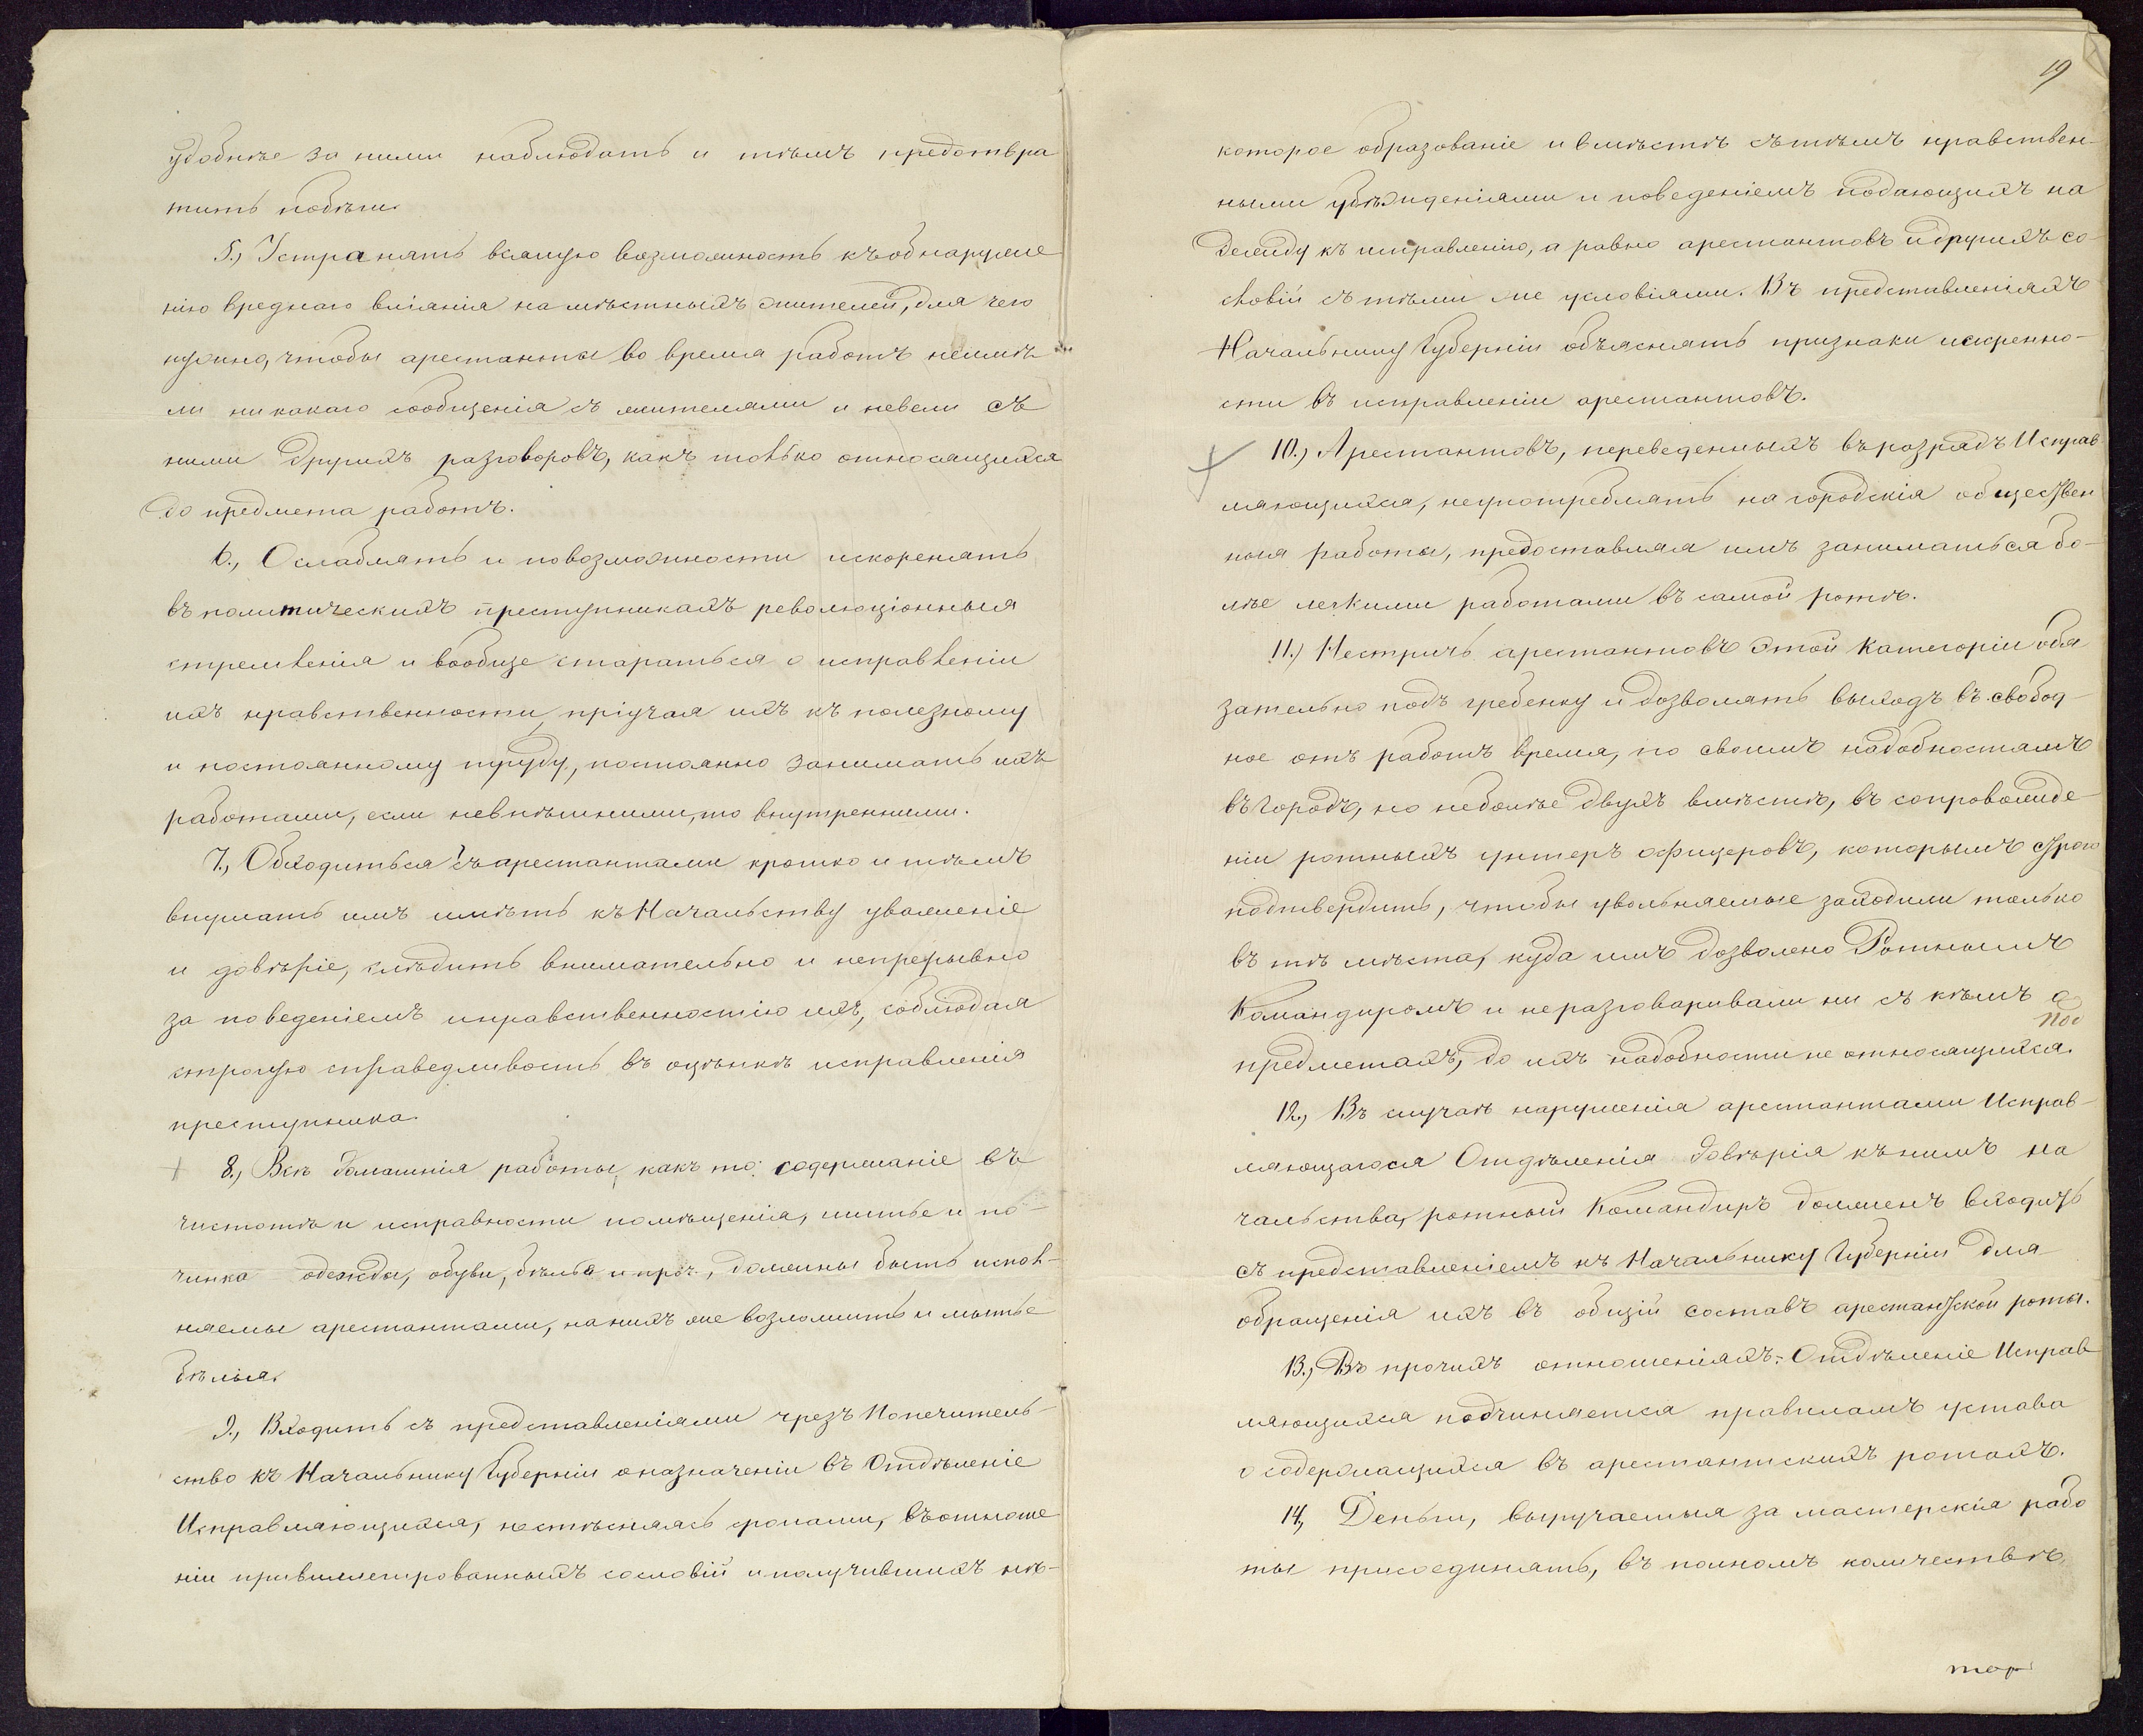 удобнѣе за ними наблюдать и тѣмъ предотвра
тить побѣги.
5., Устранять всякую возможность къ обнаруже
нію вреднаго вліянія на мѣстныхъ жителей, для чего
нужно, чтобы арестанты во время работъ неимѣ
ли никакого сообщенія съ жителями и невели съ
ними другихъ разговоровъ, какъ только относящихся
до предмета работъ.
6., Ослаблять и повозможности искоренять
въ политическихъ преступникахъ революціонныя
стремленія и вообще стараться о исправленіи
ихъ нравственности, пріучая ихъ къ полезному
и постоянному труду, постоянно занимать ихъ
работами, если невнѣшними, то внутренними.
7., Обходиться съ арестантами кротко и тѣмъ
внушать имъ имѣть къ Начальству уваженіе
и довѣріе, слѣдить внимательно и непрерывно
за поведеніемъ инравственностію ихъ, соблюдая
строгую справедливость въ оцѣнкѣ исправленія
преступника.
8., Всѣ домашнія работы, какъ то: содержаніе въ
чистотѣ и исправности помѣщенія, шитье и по-
чинка одежды, обуви, бѣлья и проч., должны быть испол-
няемы арестантами, на нихъ же возложить и мытье
бѣлья.
9., Входить съ представленіями чрезъ Попечитель-
ство къ Начальнику Губерніи о назначеніи въ Отдѣленіе
Исправляющихся, нестѣсняясь сроками, въотноше
ніи привиллегированныхъ сословій и получившихъ нѣ-
19
которое образованіе и вмѣстѣ съ тѣмъ нравствен-
ными убѣжденіями и поведеніемъ подающихъ на
дежду къ исправленію, а равно арестантовъ и другихъ со-
словій съ тѣми же условіями. Въ представленіяхъ
Начальнику Губерніи объяснять признаки искренно-
сти въ исправленіи арестантовъ.
10., Арестантовъ, переведенныхъ въ розрядъ Исправ
ляющихся, неупотреблять на городскія обществен
ныя работы, предоставляя имъ заниматься бо-
лѣе легкими работами въ самой ротѣ.
11.) Нестричь арестантовъ этой категоріи обя
зательно подъ гребенку и дозволять выходъ въ свобод-
ное отъ работъ время, по своимъ надобностямъ
въ городъ, но неболѣе двухъ вмѣстѣ, въ сопровожде-
ніи ротныхъ унтеръ офицеровъ, которымъ строго
подтвердить, чтобы увольняемые заходили только
въ тѣ мѣста, куда имъ дозволено Ротнымъ
Командиромъ и неразговаривали ни съ кѣмъ о
предметахъ, до ихъ надобности не относящихся.
12., Въ случаѣ нарушенія арестантами Исправ-
ляющагося Отдѣленія довѣрія къ нимъ на
чальства, ротный Командиръ долженъ входить
съ представленіемъ къ Начальнику Губерніи для
обращенія ихъ въ общій составъ арестантской роты.
13., Въ прочихъ отношеніяхъ: Отдѣленіе Исправ
ляющихся подчиняется правиламъ устава
о содержащихся въ арестантскихъ ротахъ.
14., Деньги, выручаемыя за мастерскія рабо
ты присоединять, въ полномъ количествѣ,